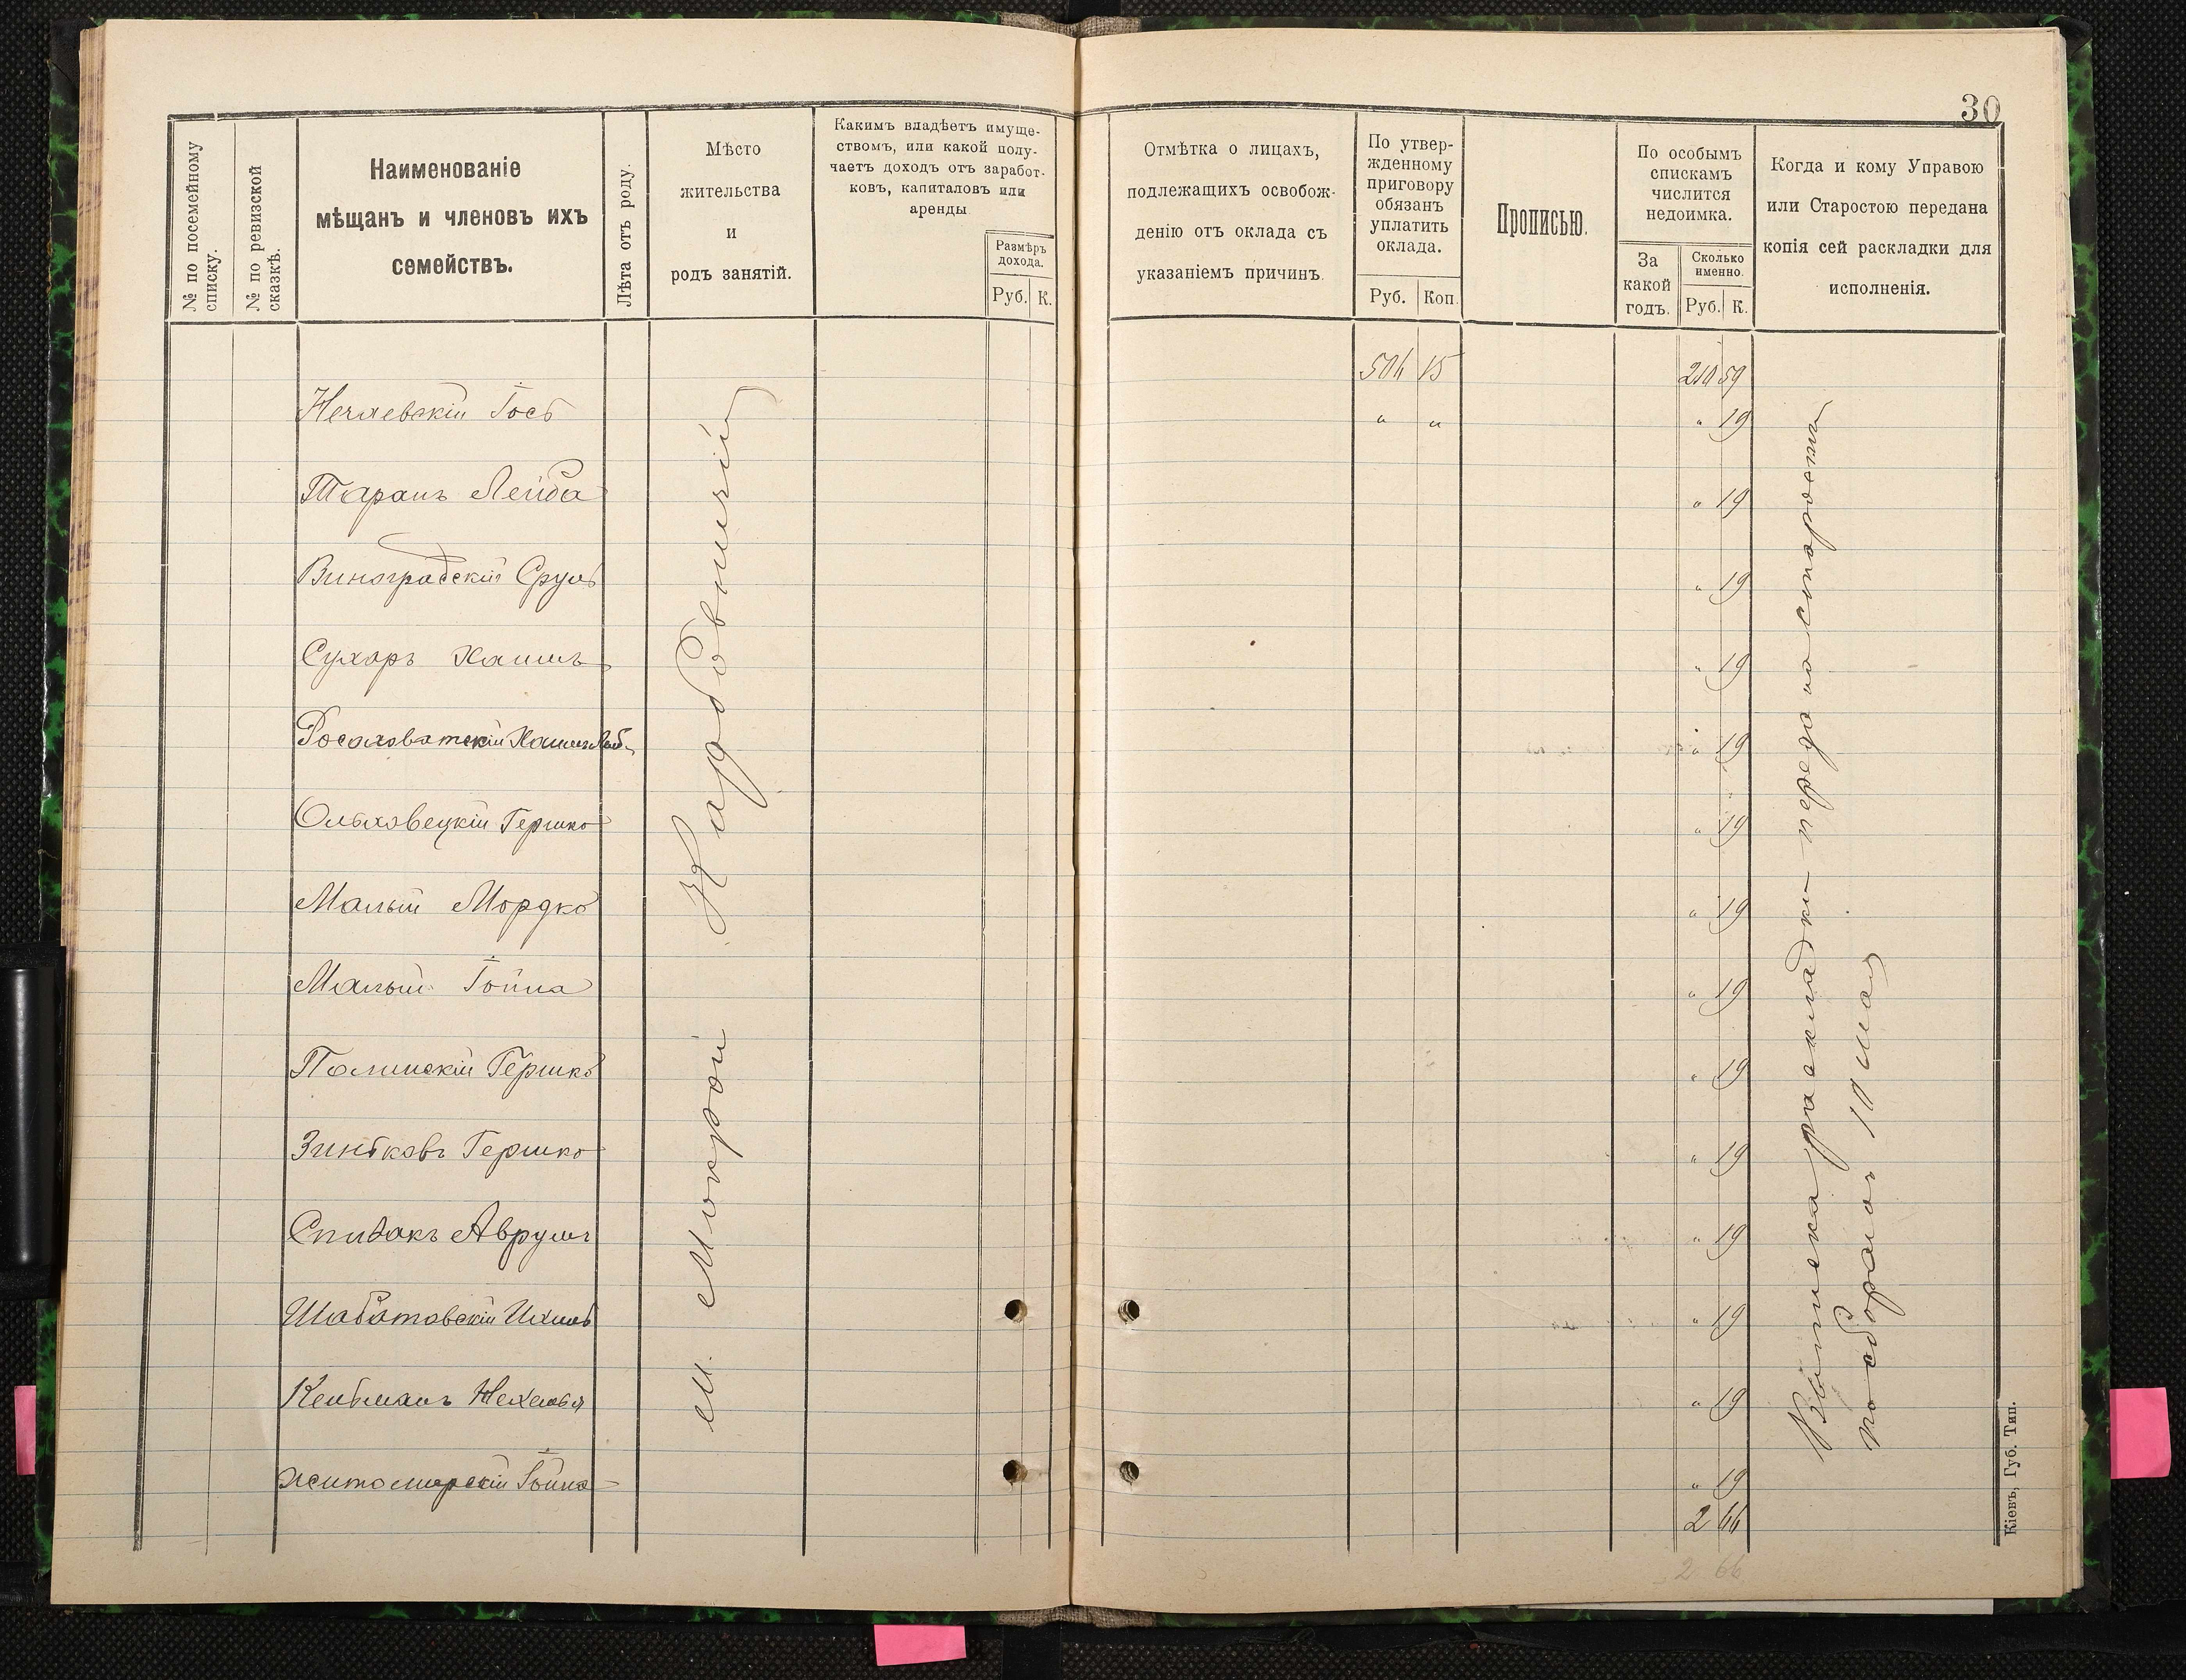 30
№ по посемейному списку.
№ по ревизской сказкѣ.
Наименованіе
мѣщанъ и членовъ ихъ
семействъ.
Лѣта отъ роду.
Мѣсто
жительства
и
родъ занятій.
Какимъ владѣетъ имуще-
ствомъ, или какой полу-
чаетъ доходъ отъ заработ-
ковъ, капиталовъ или
аренды
Размѣръ
дохода.
Руб. К.
Отмѣтка о лицахъ,
подлежащихъ освобож-
денію отъ оклада съ
указаніемъ причинъ.
По утвер-
жденному
приговору
обязанъ
уплатить
оклада.
Руб. Коп.
Прописью.
По особымъ
спискамъ
числится
недоимка.
За
какой
годъ.
Сколько
именно.
Руб. К.
Когда и кому Управою
или Старостою передана
копія сей раскладки для
исполненія.
504 15 210 59
Нечаевскій Іосъ " " " 19
Таранъ Лейба " 19
Виноградскій Сруль " 19
Сухаръ Хаимъ " 19
Росоховатскій Хаимъ Лейб " 19
Ольховецкій Гершко " 19
Малый Мордко " 19
Малый Іойна " 19
Полинскій Гершко " 19
Зиньковъ Гершко " 19
Спивакъ Аврумъ " 19
Шабатовскій Ихиль " 19
Кельманъ Нехемья " 19
Житомирскій Іойна " 19
2 66
2 66
м. Мокрой Кардовничій
Выписка раскладки передана старостѣ
по сборамъ 10 мая
Кіевъ, Губ. Тип.